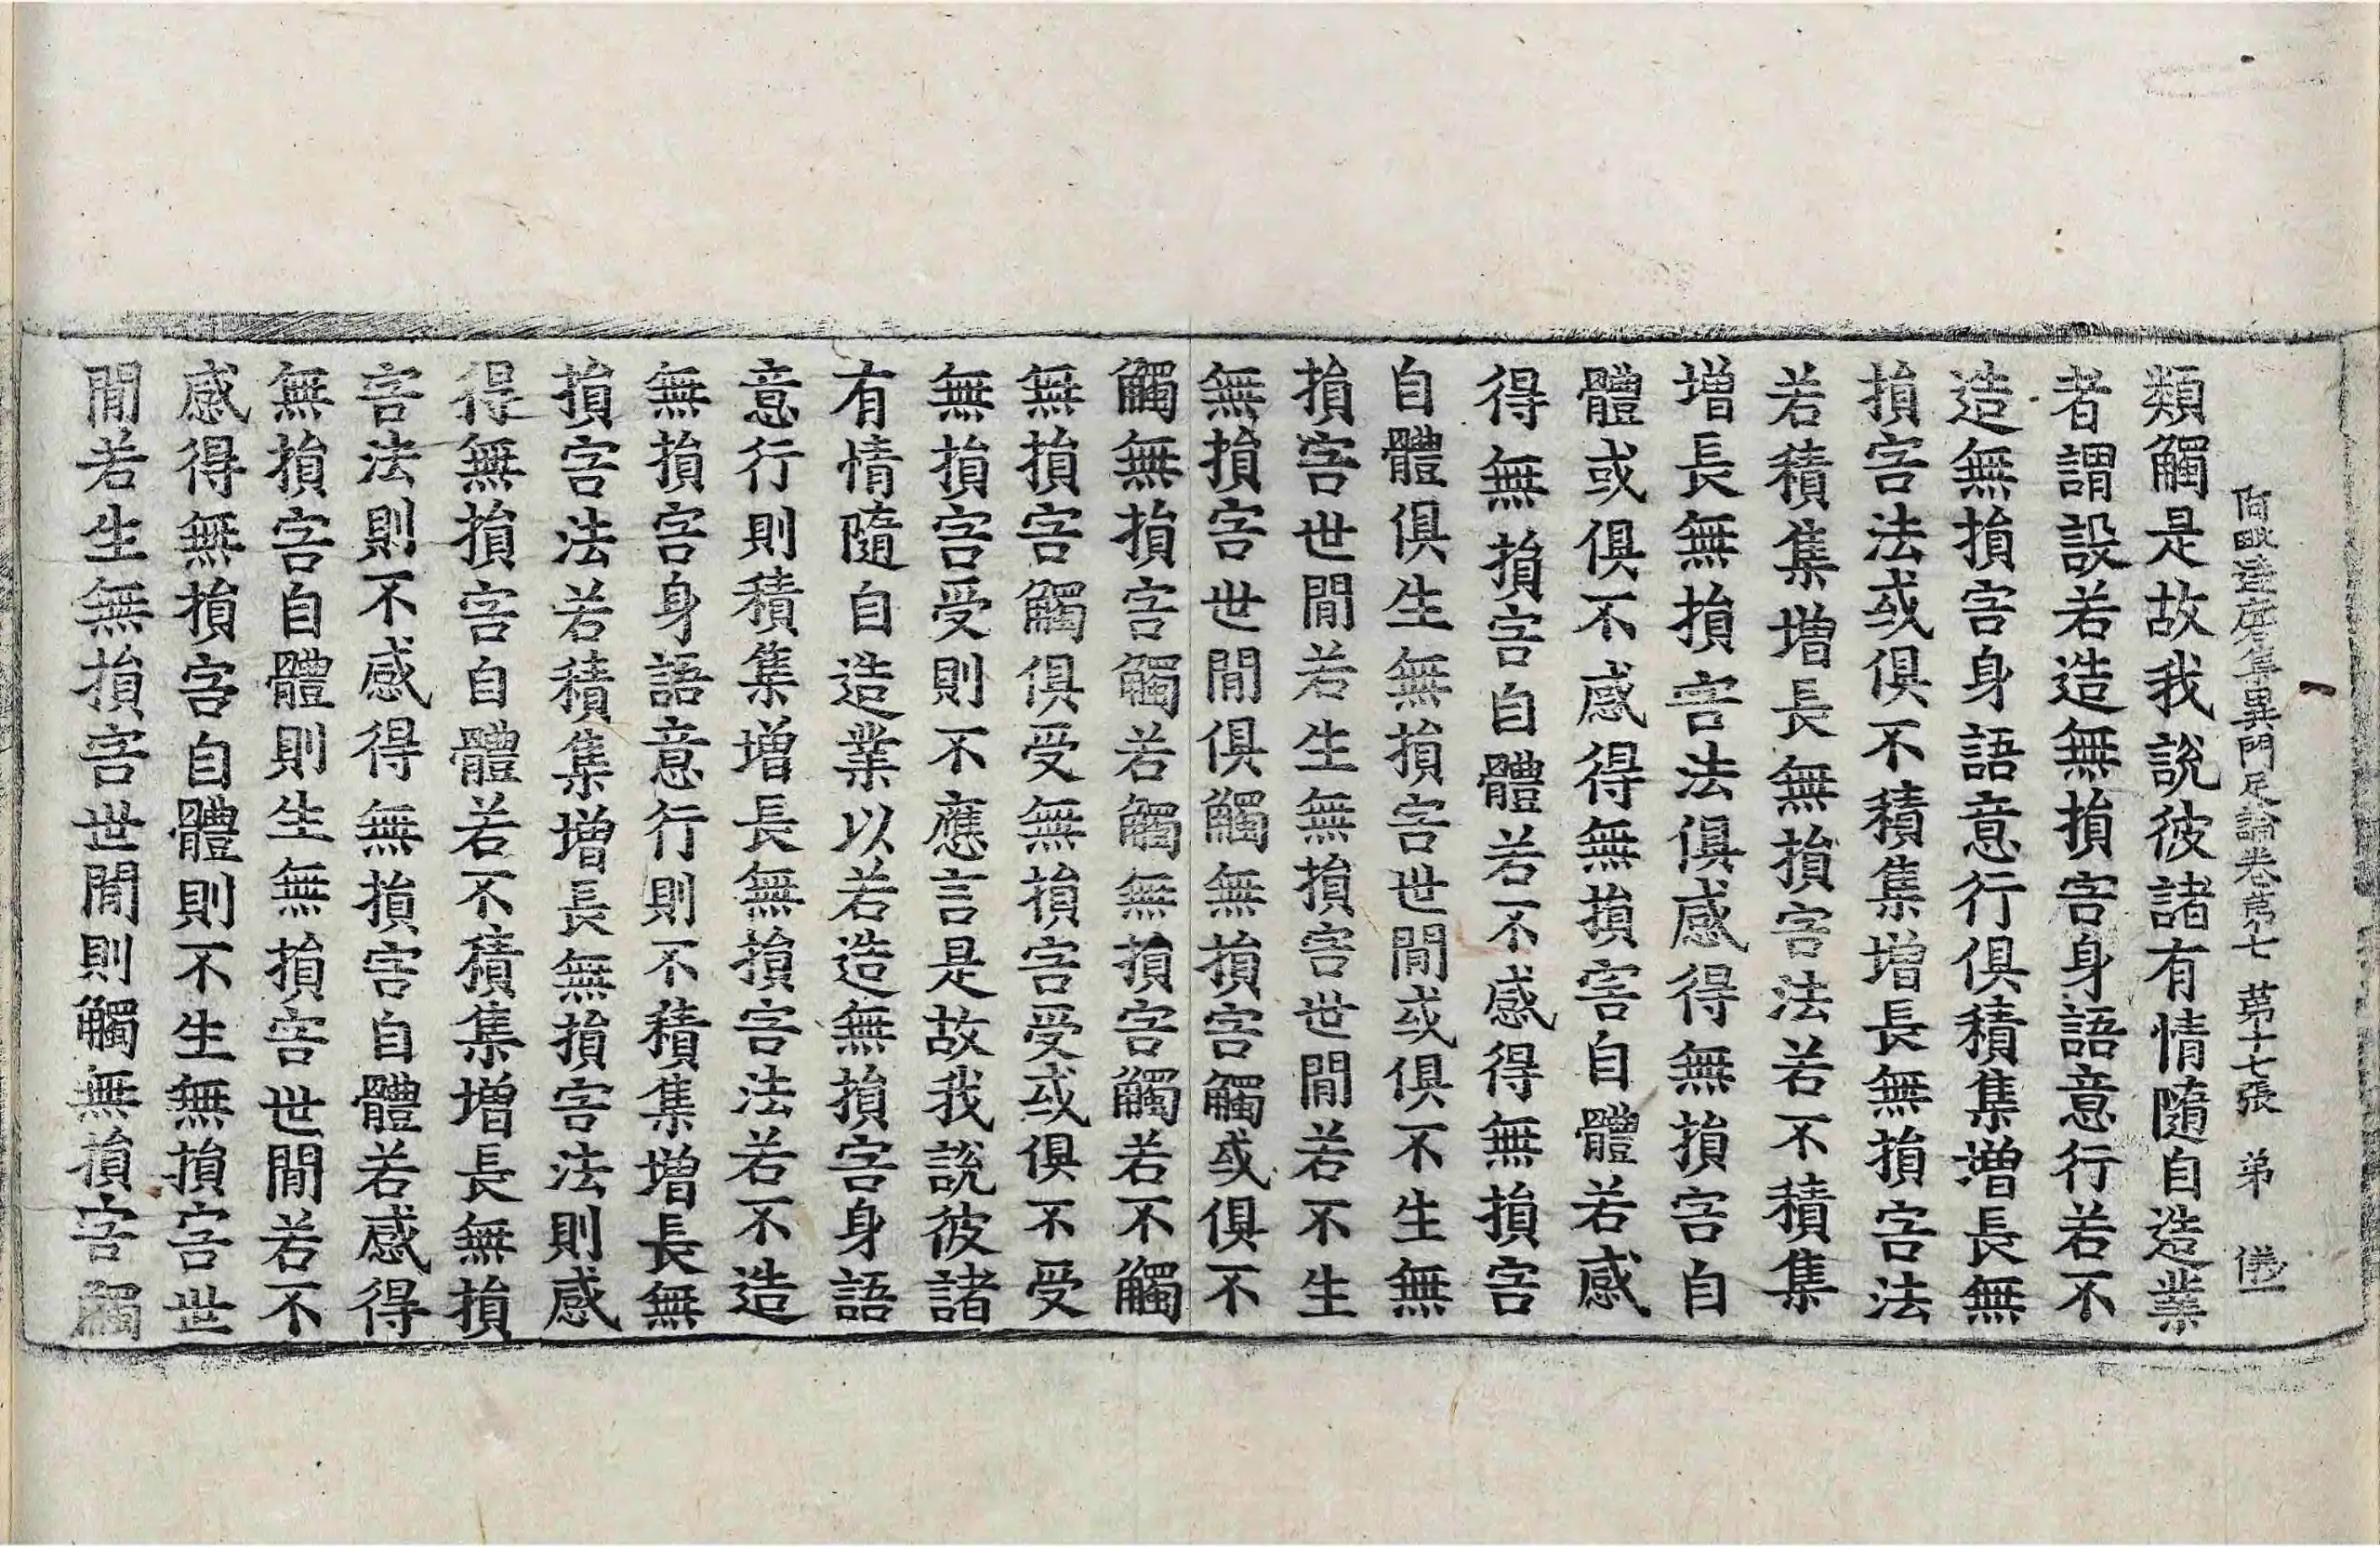 阿毗達磨集異門足論卷第七 第十七張 弟
類觸是故我說彼諸有情隨自造業
者謂設若造無損害身語意行若不
造無損害身語意行俱積集增長無
損害法或俱不積集增長無損害法
若積集增長無損害法若不積集
增長無損害法俱感得無損害自
體或俱不感得無損害自體若感
得無損害自體若不感得無損害
自體俱生無損害世間或俱不生無
損害世間若生無損害世間若不生
無損害世間俱觸無損害觸或俱不
觸無損害觸若觸無損害觸若不觸
無損害觸俱受無損害受或俱不受
無損害受則不應言是故我說彼諸
有情隨自造業以若造無損害身語
意行則積集增長無損害法若不造
無損害身語意行則不積集增長無
損害法若積集增長無損害法則感
得無損害自體若不積集增長無損
害法則不感得無損害自體若感得
無損害自體則生無損害世間若不
感得無損害自體則不生無損害世
間若生無損害世間則觸無損害觸